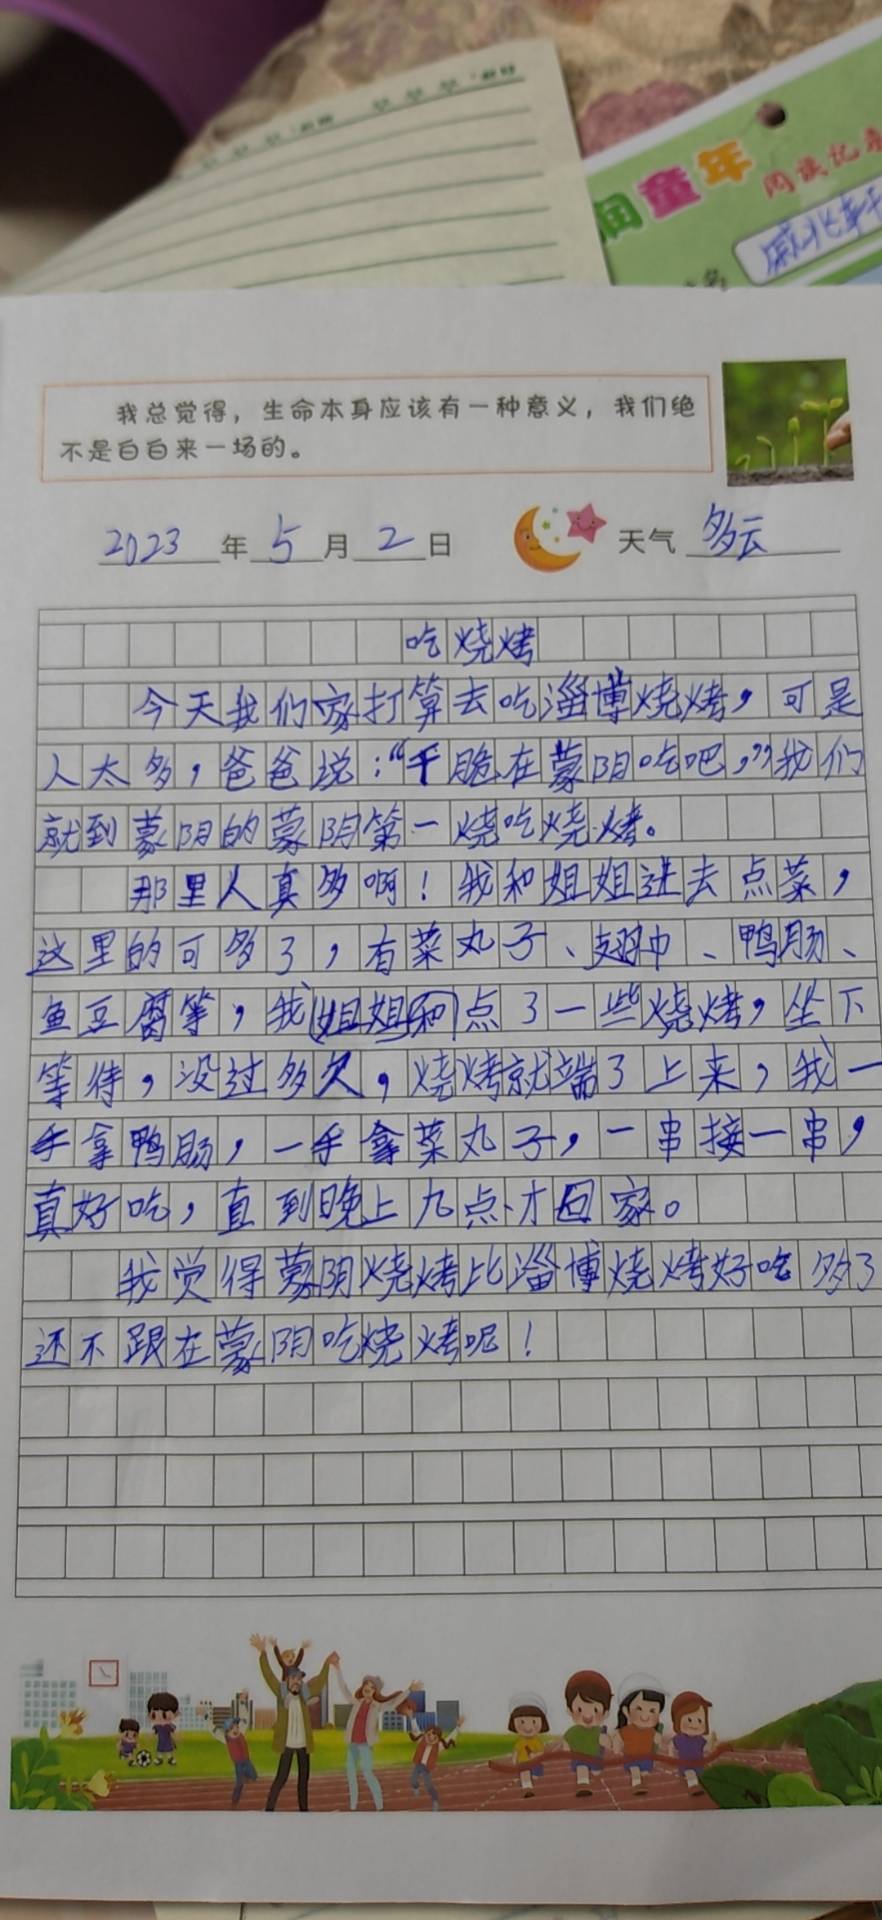 润童年
阅读记录
我总觉得，生命本身应该有一种意义，我们绝
不是白白来一场的。
2023年5月2日 天气 多云
吃烧烤
今天我们家打算去吃淄博烧烤，可是
人太多，爸爸说：“干脆在蒙阴吃吧，”我们
就到蒙阴的蒙阴第一烧吃烧烤。
那里人真多啊！我和姐姐进去点菜，
这里的可多了，有菜丸子、翅中、鸭肠、
鱼豆腐等，我姐姐和点了一些烧烤，坐下
等待，没过多久，烧烤就端了上来，我一
手拿鸭肠，一手拿菜丸子，一串接一串，
真好吃，直到晚上九点才回家。
我觉得蒙阴烧烤比淄博烧烤好吃多了
还不跟在蒙阴吃烧烤呢！